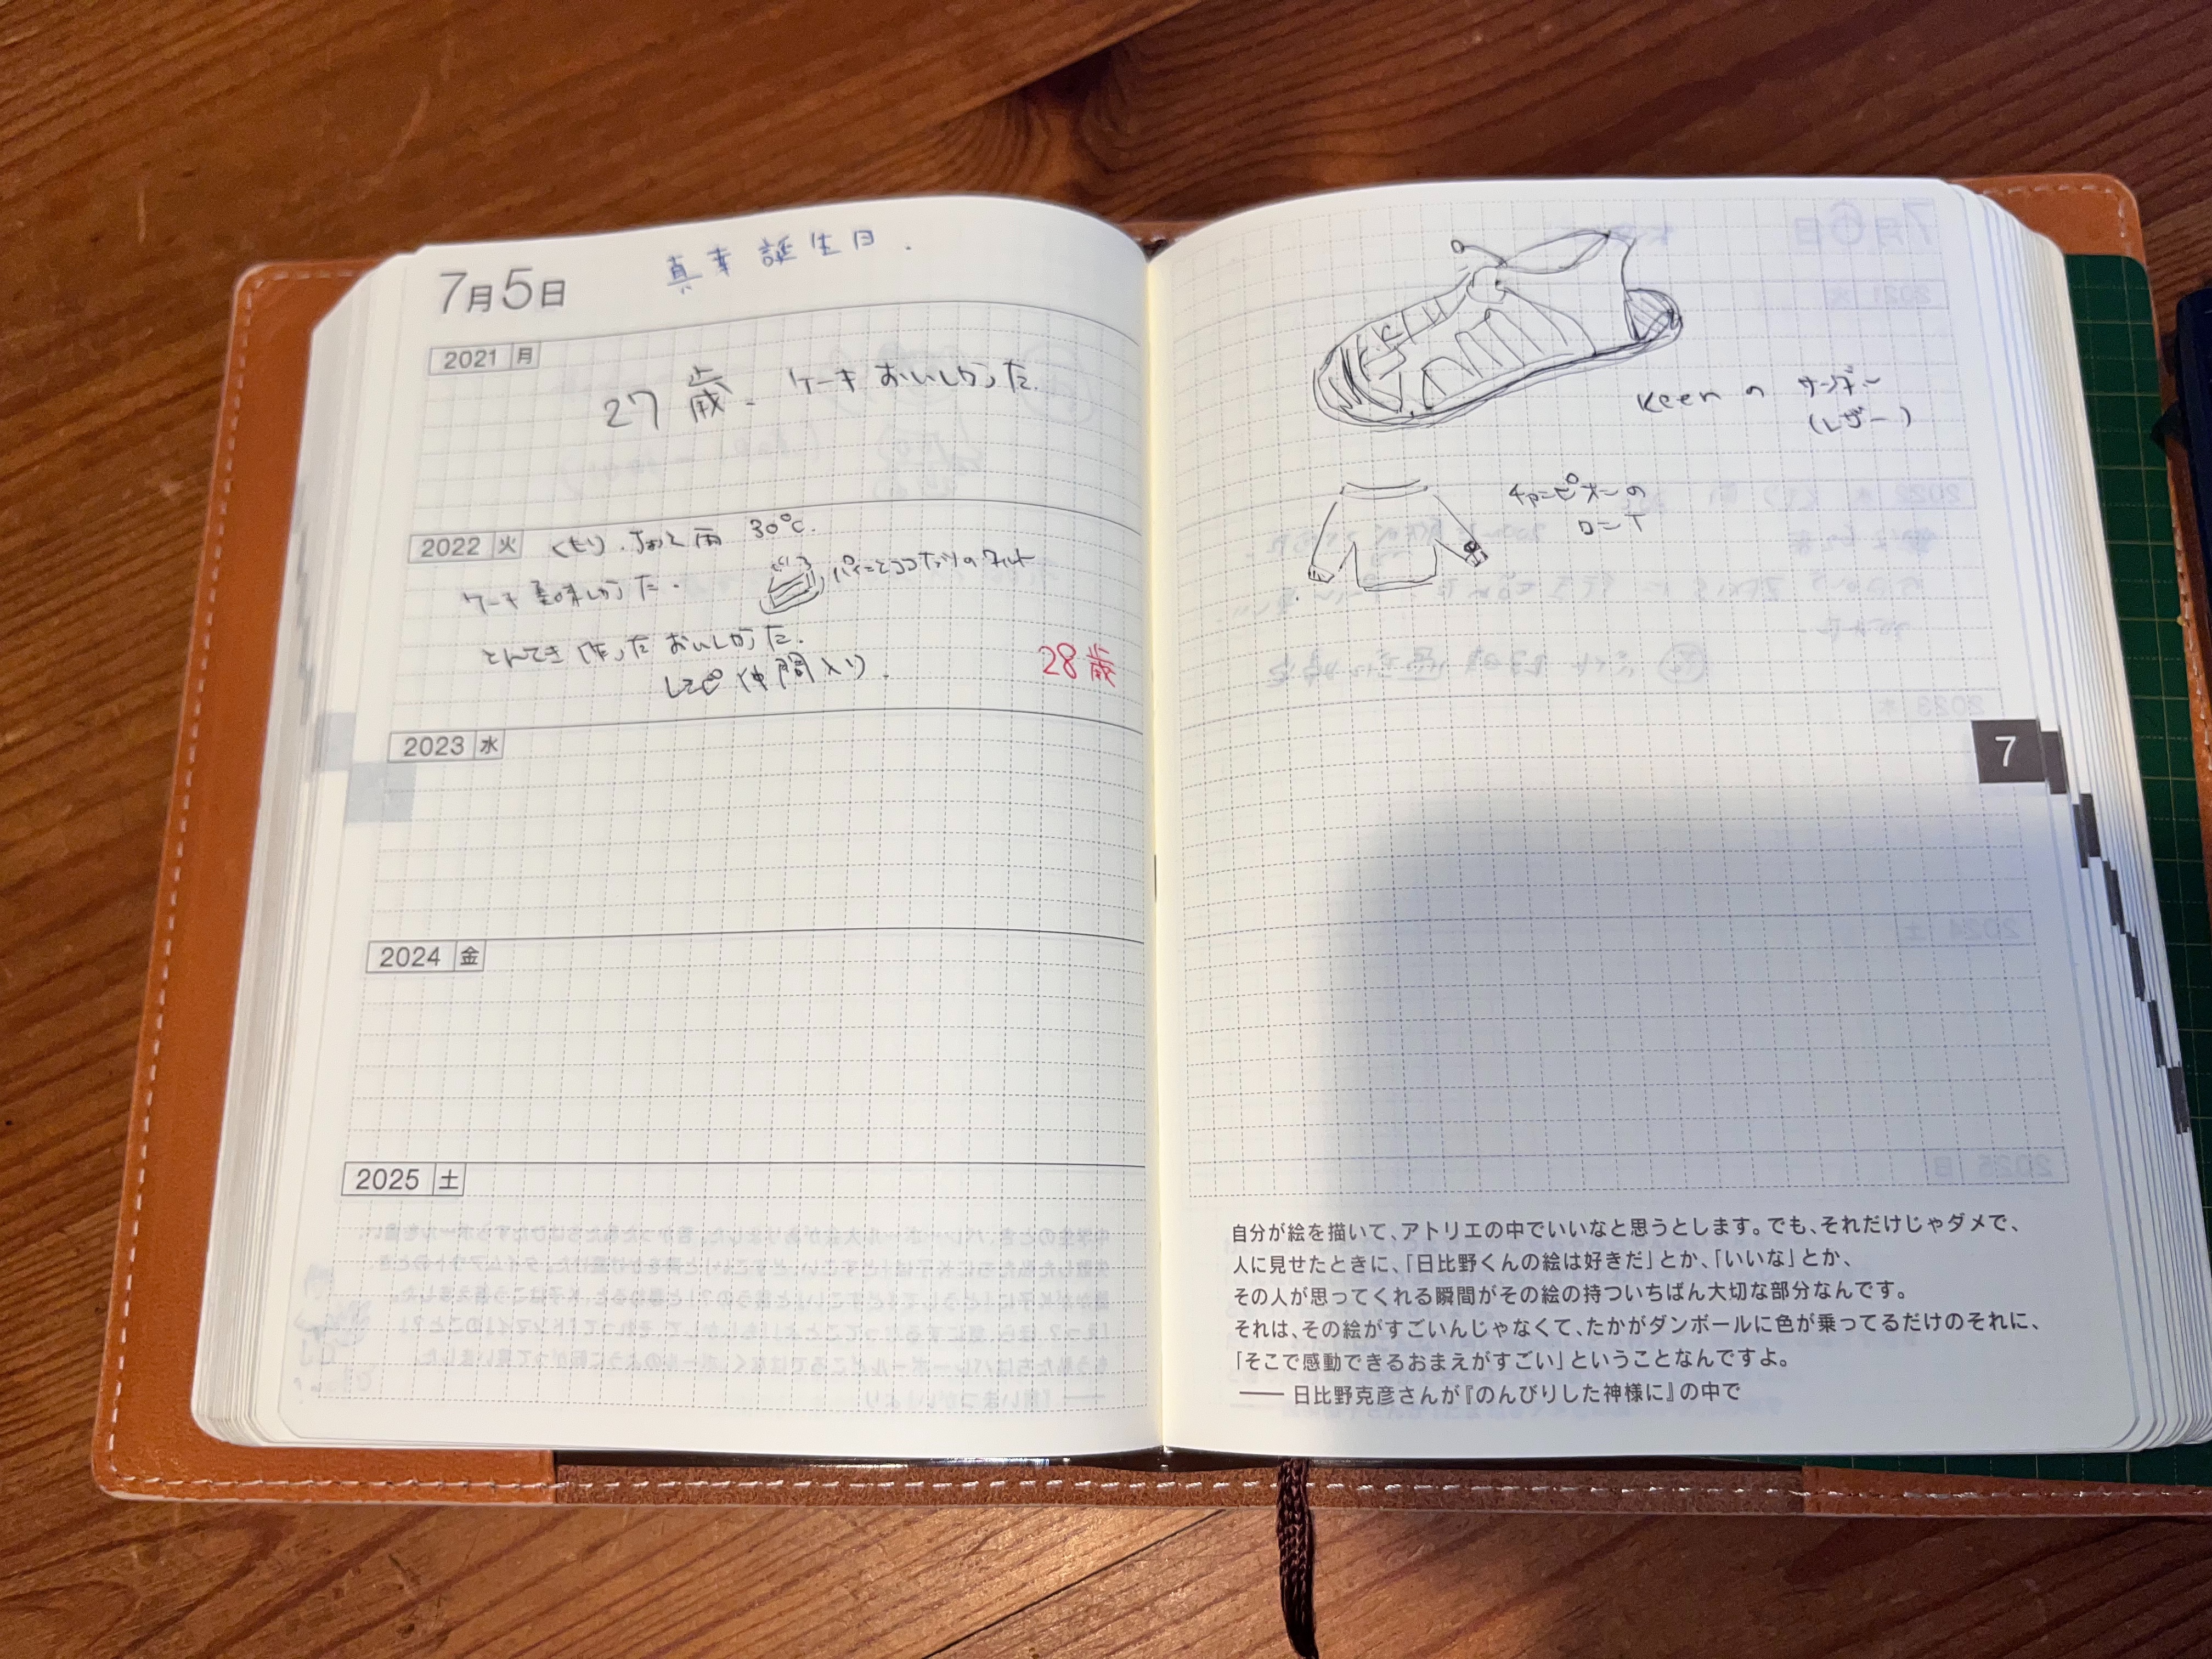 7月5日
真幸 誕生日.
2021 月
27歳. ケーキ おいしかった.
2022 火 くもり.ちょこっと雨 30℃.
ケーキ美味しかった.
パインとココナッツのタルト
とんてき作った おいしかった.
レシピ仲間入り.
28歳
2023 水
2024 金
2025 土
Keenの サンダル
(レザー)
チャンピオンの
ロンT
7
自分が絵を描いて、アトリエの中でいいなと思うとします。でも、それだけじゃダメで、
人に見せたときに、「日比野くんの絵は好きだ」とか、「いいな」とか、
その人が思ってくれる瞬間がその絵の持ついちばん大切な部分なんです。
それは、その絵がすごいんじゃなくて、たかがダンボールに色が乗ってるだけのそれに、
「そこで感動できるおまえがすごい」ということなんですよ。
―― 日比野克彦さんが『のんびりした神様に』の中で